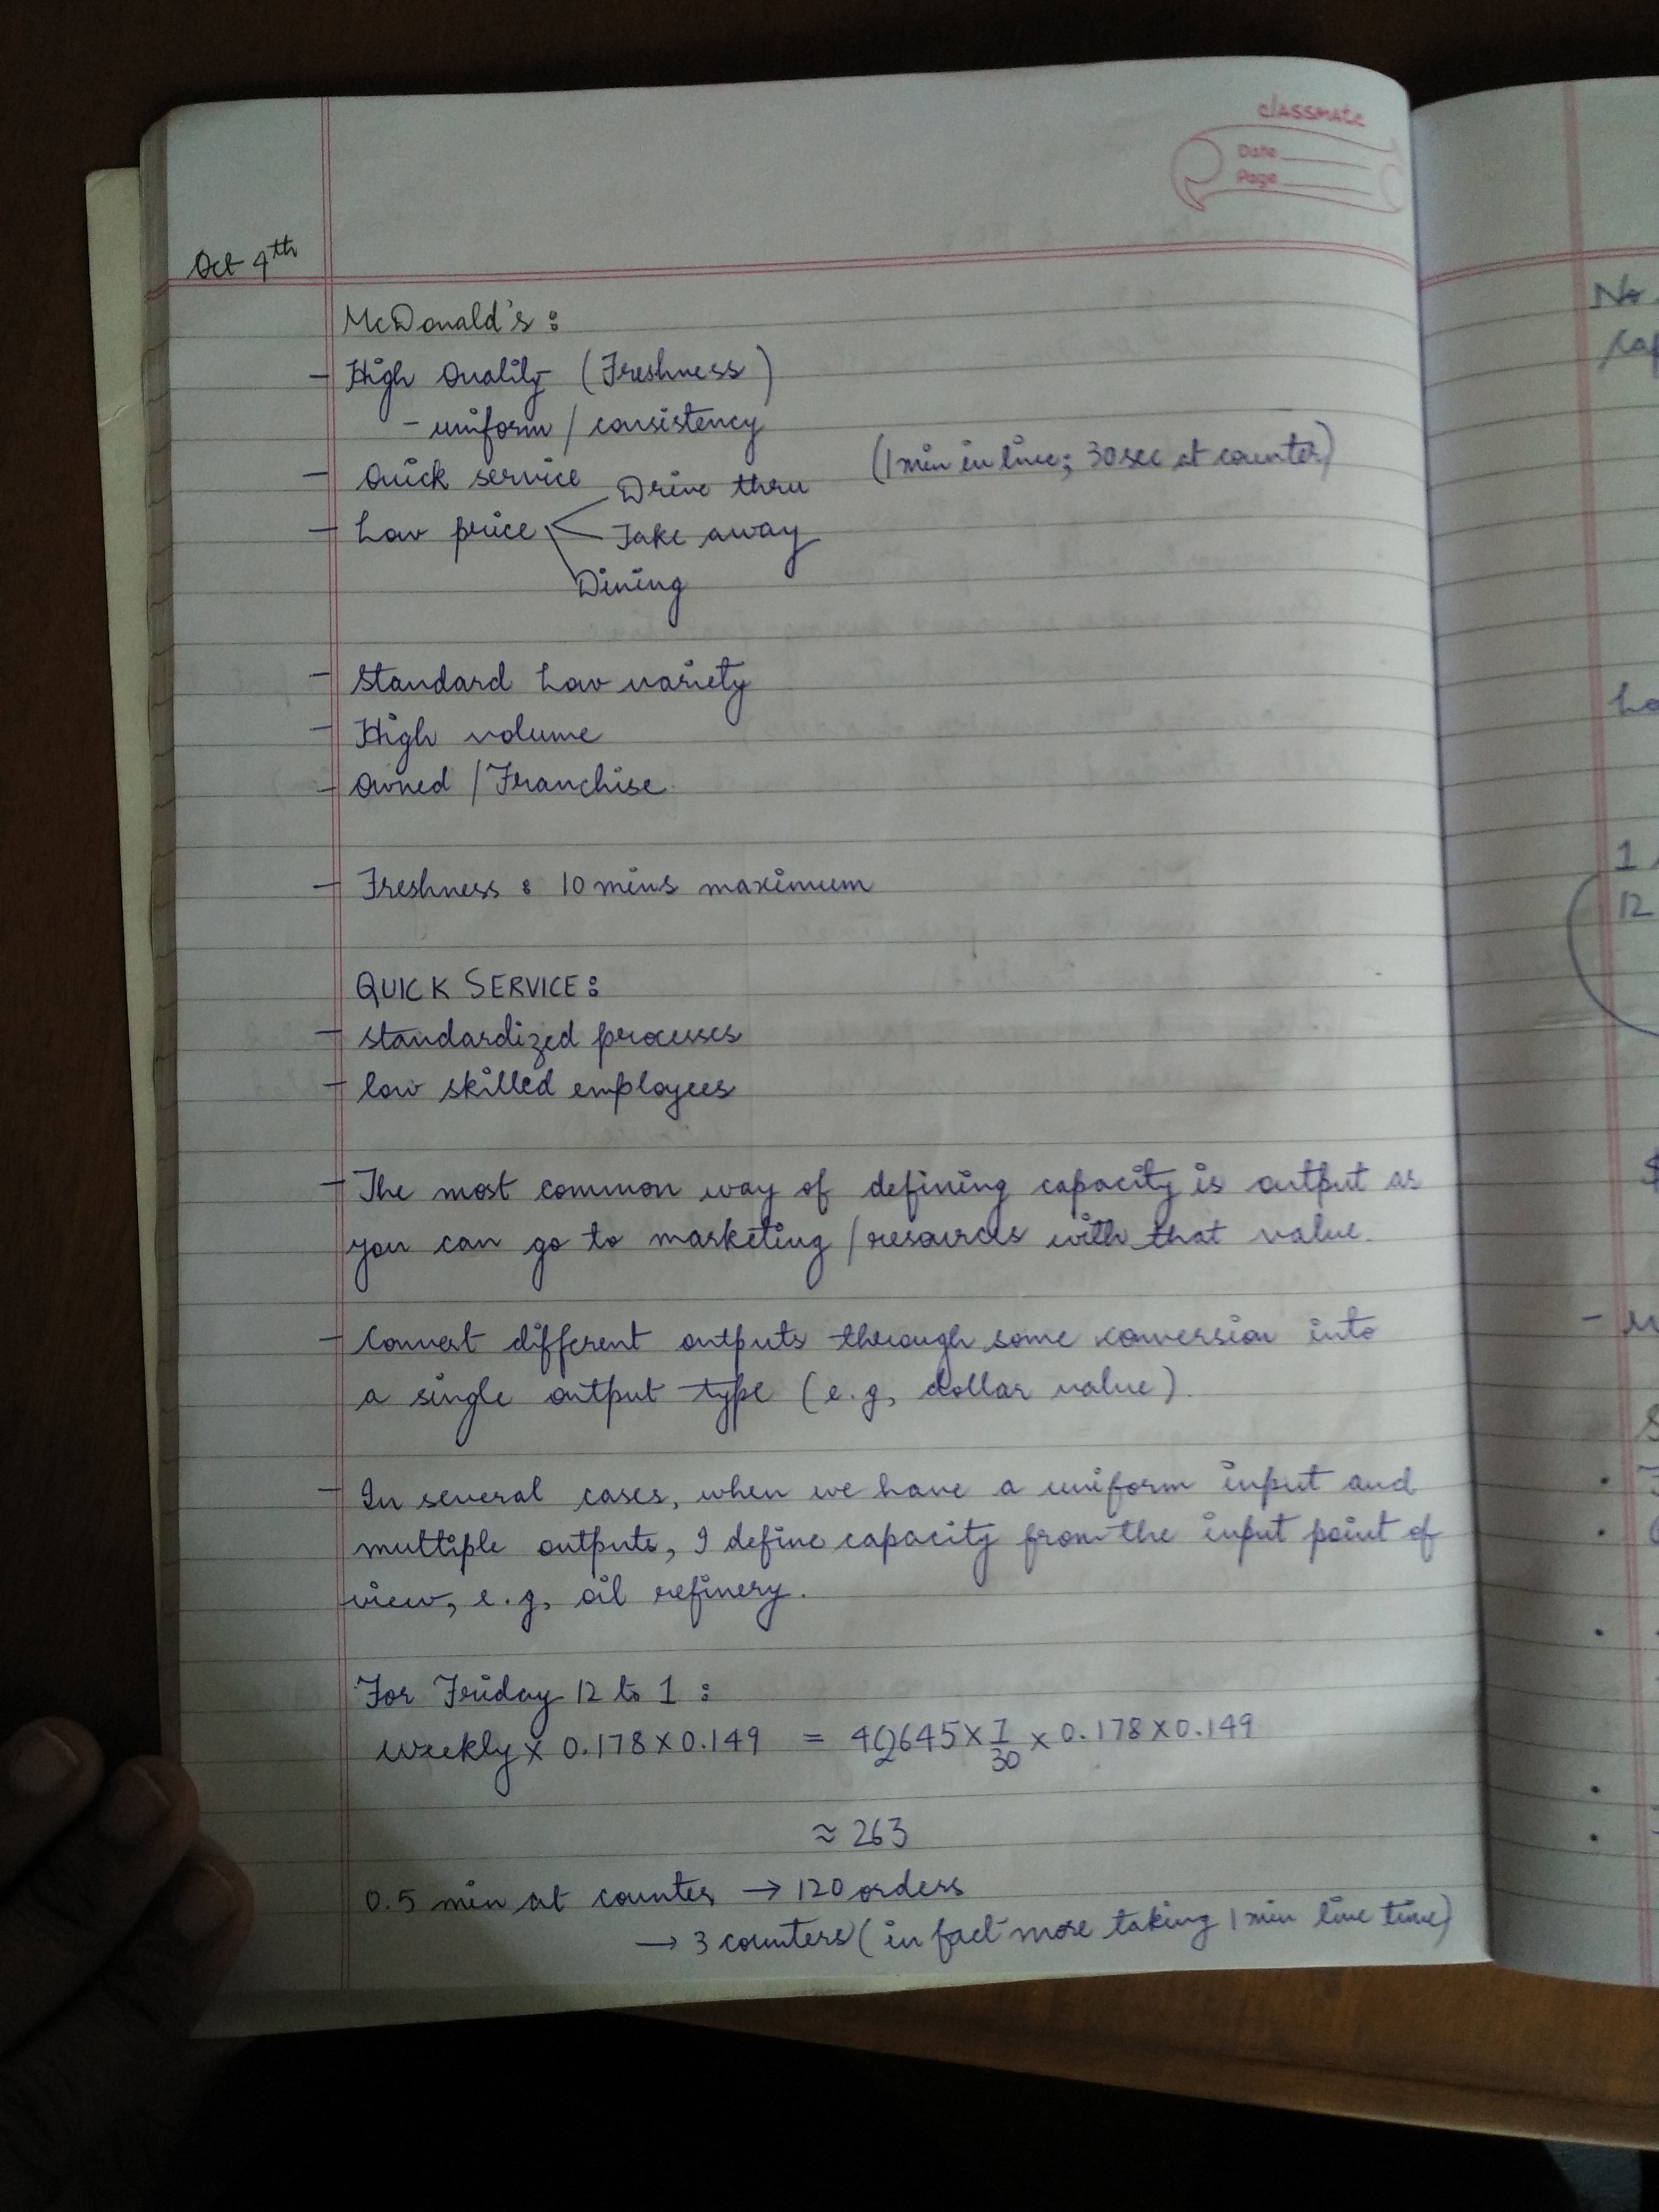 classmate
Date
Page
Oct 4th
McDonald's :
- High Quality (Freshness)
- uniform / consistency
- Quick service (1 min in line; 30 sec at counter)
Drive thru
- Low price Take away
Dining
- Standard Low variety
- High volume
- Owned / Franchise.
- Freshness : 10 mins maximum
QUICK SERVICE :
- standardized processes
- low skilled employees
- The most common way of defining capacity is output as
you can go to marketing / resources with that value.
- Convert different outputs through some conversion into
a single output type (e.g, dollar value).
- In several cases, when we have a uniform input and
multiple outputs, I define capacity from the input point of
view, e.g, oil refinery.
For Friday 12 to 1 :
Weekly x 0.178 x 0.149 = 42645 x 7/30 x 0.178 x 0.149
≈ 263
0.5 min at counter → 120 orders
→ 3 counters (in fact more taking 1 min line time)
No
1
12
$